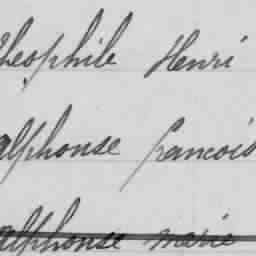 théophile Henri
alphonse francois
alphonse marie